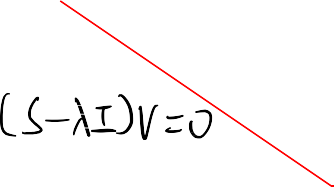 (S-λI)V=0